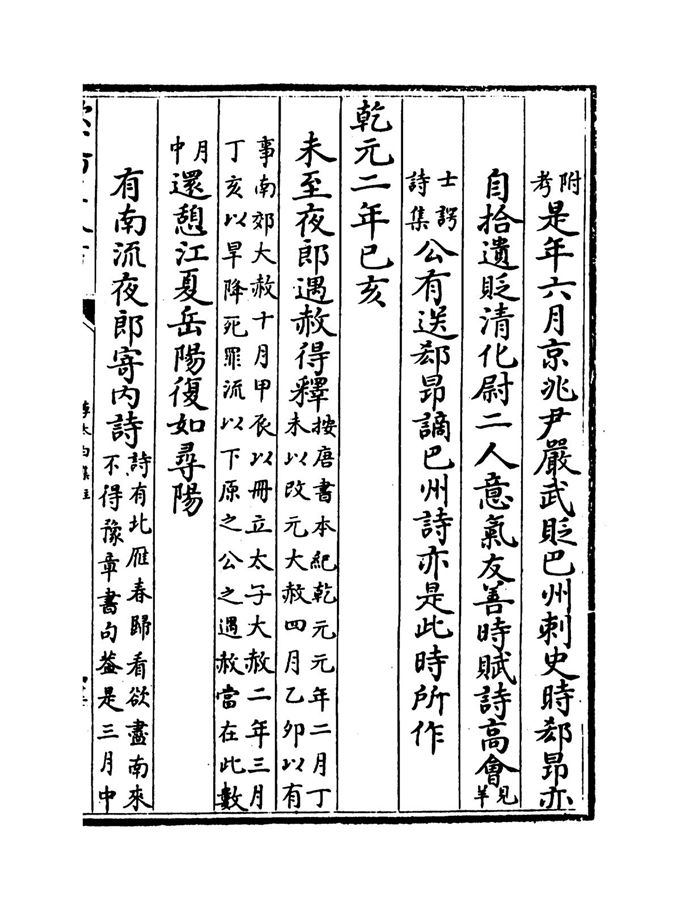 附考是年六月京兆尹嚴武貶巴州刺史時郄昂亦
自拾遺貶清化尉二人意氣友善時賦詩高會見羊
士諤詩集公有送郄昂謫巴州詩亦是此時所作
乾元二年已亥
未至夜郎遇赦得釋按唐書本紀乾元元年二月丁
未以改元大赦四月乙卯以有
事南郊大赦十月甲辰以冊立太子大赦二年三月
丁亥以旱降死罪流以下原之公之遇赦當在此數
月中還憩江夏岳陽復如尋陽
有南流夜郎寄内詩詩有北雁春歸看欲盡南來
不得豫章書句葢是三月中
李太白集注